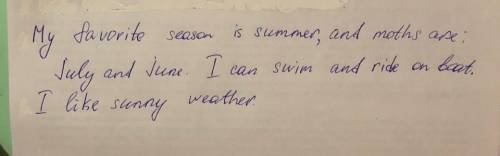 My favorite season is summer, and moths are:
July and June. I can swim and ride on boat.
I like sunny weather.